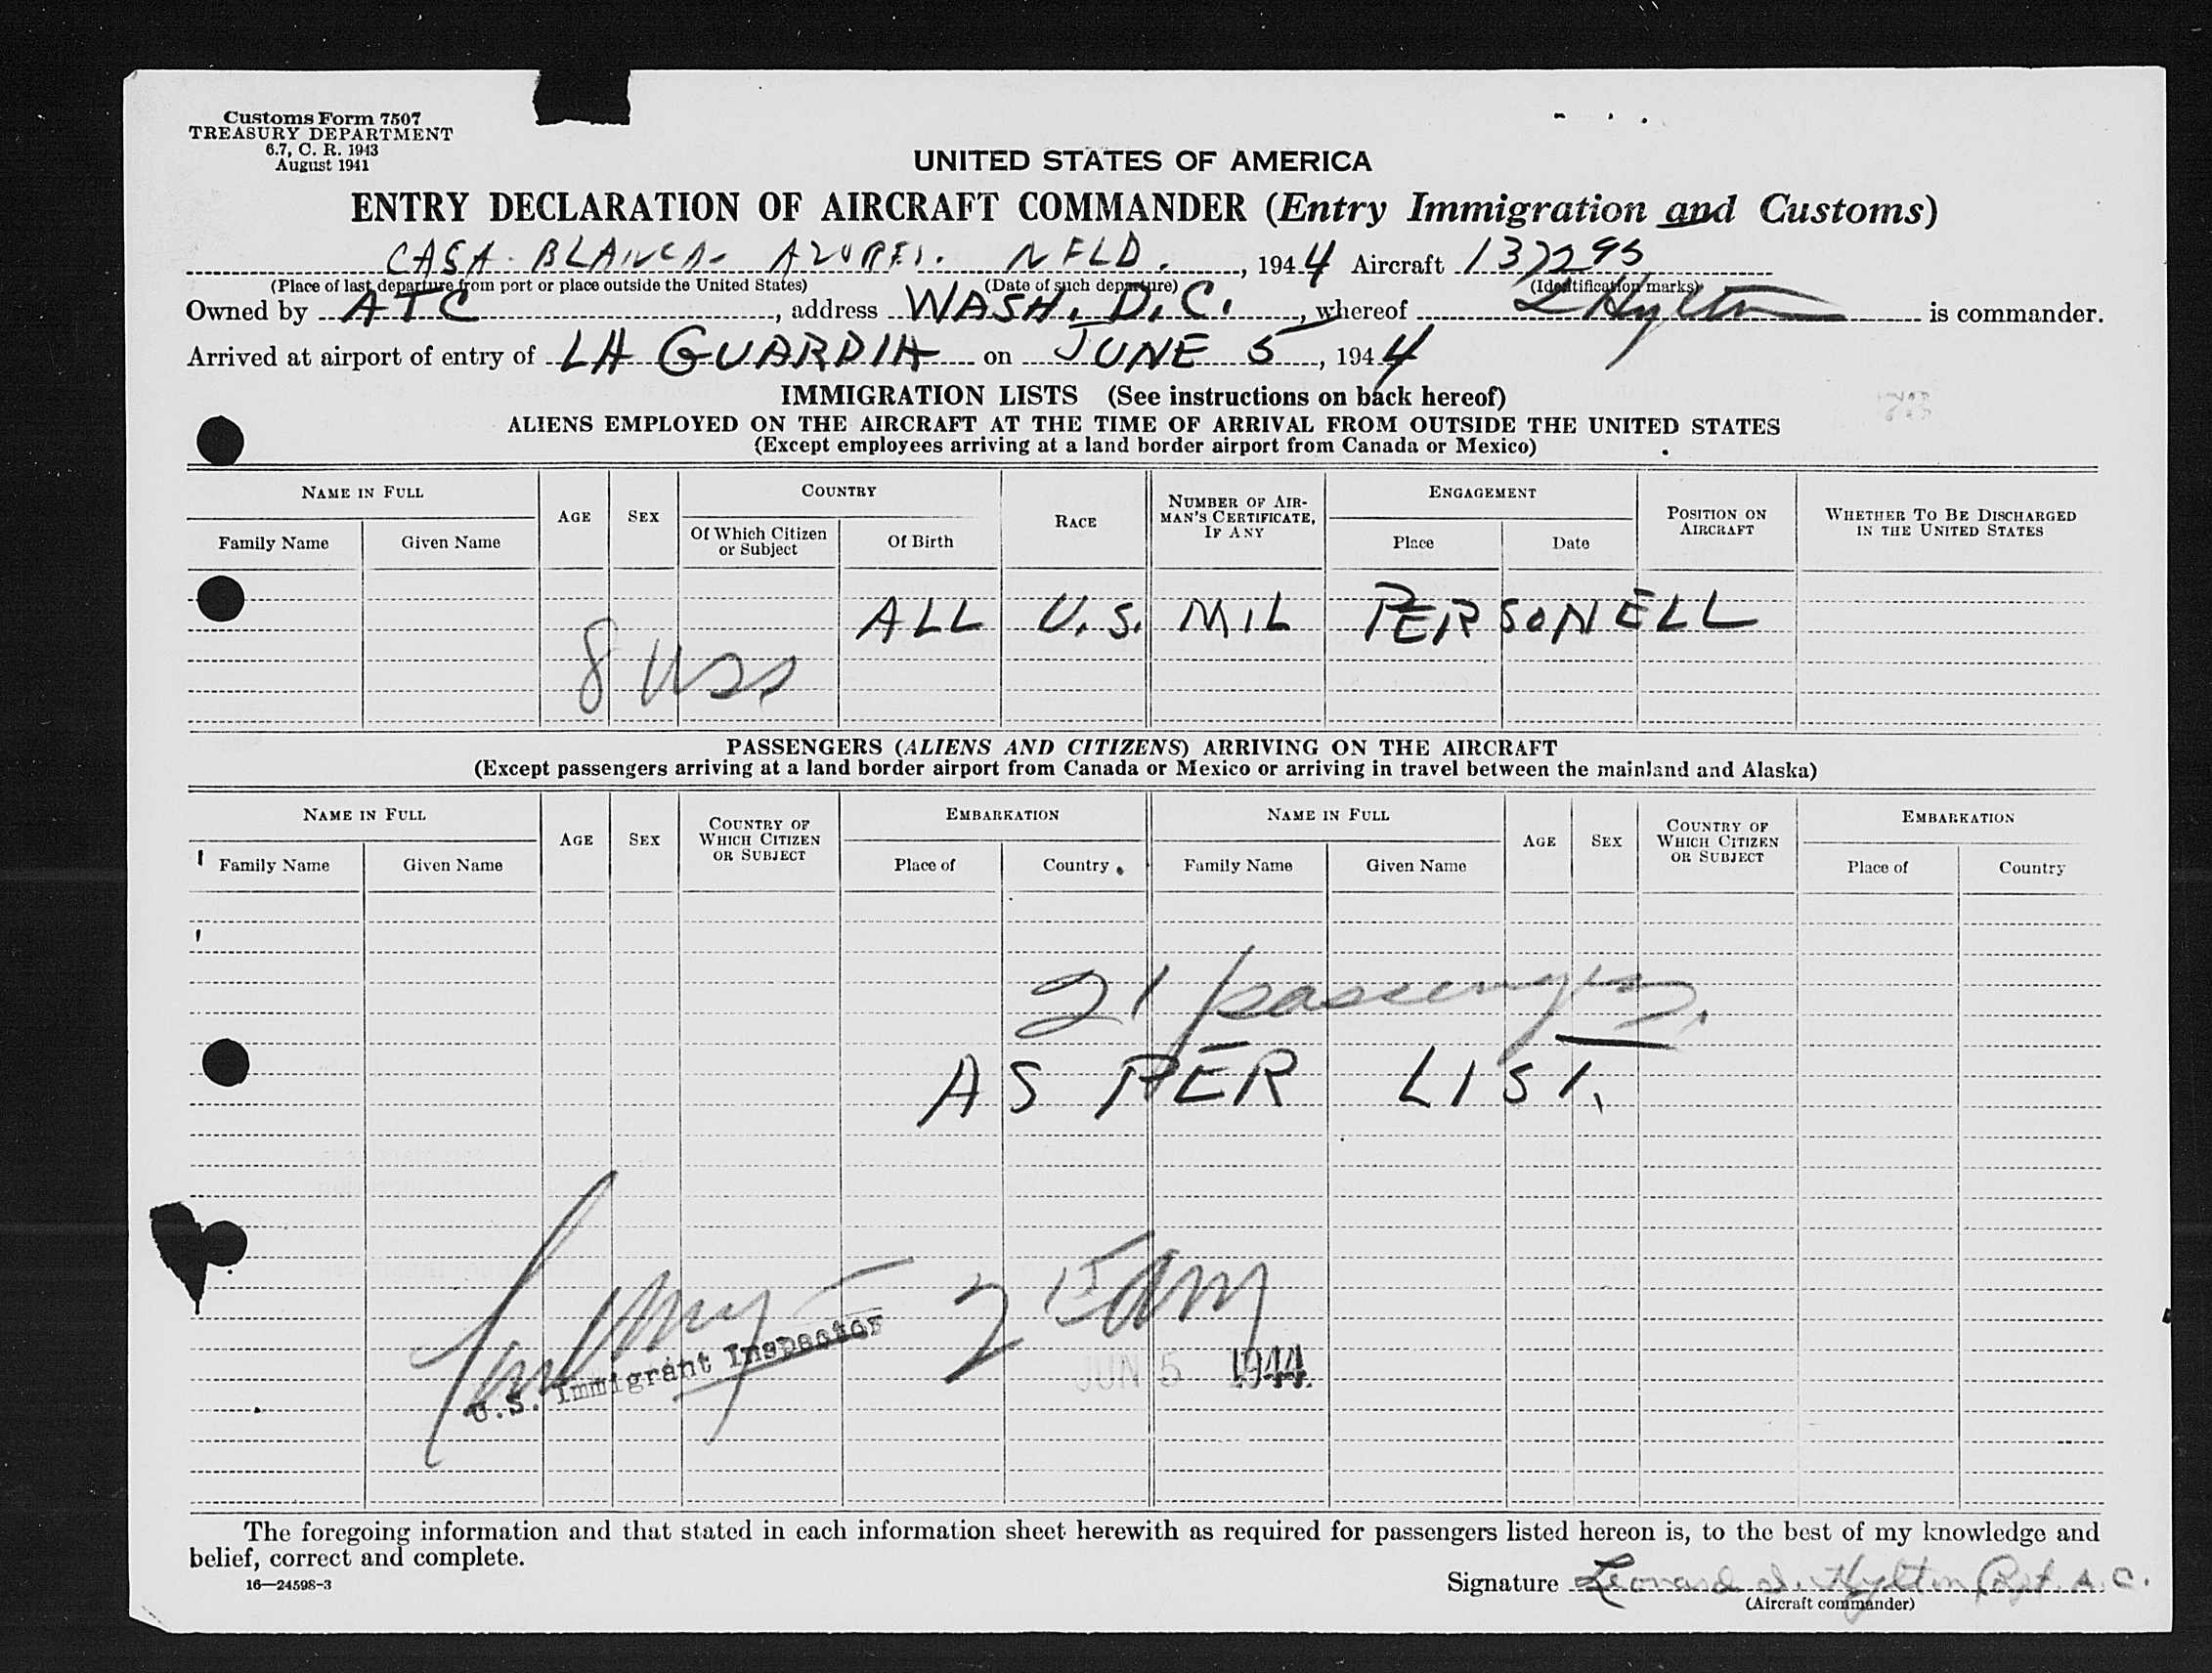 Customs Form 7507
TREASURY DEPARTMENT
6.7, C. R. 1943
August 1941
UNITED STATES OF AMERICA
ENTRY DECLARATION OF AIRCRAFT COMMANDER (Entry Immigration and Customs)
CASA BLANCA- AZORES. NFLD., 1944 Aircraft 137295
(Place of last departure from port or place outside the United States) (Date of such departure) (Identification marks)
Owned by ATC, address WASH. D.C., whereof L Hylton is commander.
Arrived at airport of entry of LA GUARDIA on JUNE 5, 1944
IMMIGRATION LISTS (See instructions on back hereof)
ALIENS EMPLOYED ON THE AIRCRAFT AT THE TIME OF ARRIVAL FROM OUTSIDE THE UNITED STATES
(Except employees arriving at a land border airport from Canada or Mexico)
NAME IN FULL AGE SEX COUNTRY RACE NUMBER OF AIRMAN'S CERTIFICATE, IF ANY ENGAGEMENT POSITION ON AIRCRAFT WHETHER TO BE DISCHARGED IN THE UNITED STATES
Family Name Given Name Of Which Citizen or Subject Of Birth Place Date
ALL U.S. MIL PERSONELL
8 USS
PASSENGERS (ALIENS AND CITIZENS) ARRIVING ON THE AIRCRAFT
(Except passengers arriving at a land border airport from Canada or Mexico or arriving in travel between the mainland and Alaska)
NAME IN FULL AGE SEX COUNTRY OF WHICH CITIZEN OR SUBJECT EMBARKATION NAME IN FULL AGE SEX COUNTRY OF WHICH CITIZEN OR SUBJECT EMBARKATION
Family Name Given Name Place of Country Family Name Given Name Place of Country
21 passengers.
AS PER LIST.
U.S. Immigrant Inspector
JUN 5 1944
The foregoing information and that stated in each information sheet herewith as required for passengers listed hereon is, to the best of my knowledge and
belief, correct and complete.
16—24598-3
Signature Leonard I. Hylton Capt. A.C.
(Aircraft commander)